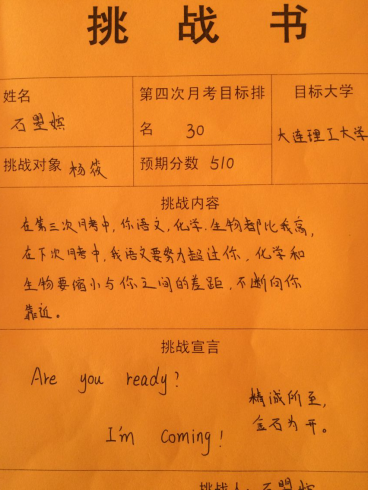 挑 战 书
姓名
石盟嫔
第四次月考目标排
名 30
目标大学
大连理工大学
挑战对象 杨筱
预期分数 510
挑战内容
在第三次月考中,你语文,化学,生物都比我高,
在下次月考中,我语文要努力超过你,化学和
生物要缩小与你之间的差距,不断向你
靠近。
挑战宣言
Are you ready?
I'm coming!
精诚所至,
金石为开。
挑战人:石盟嫔